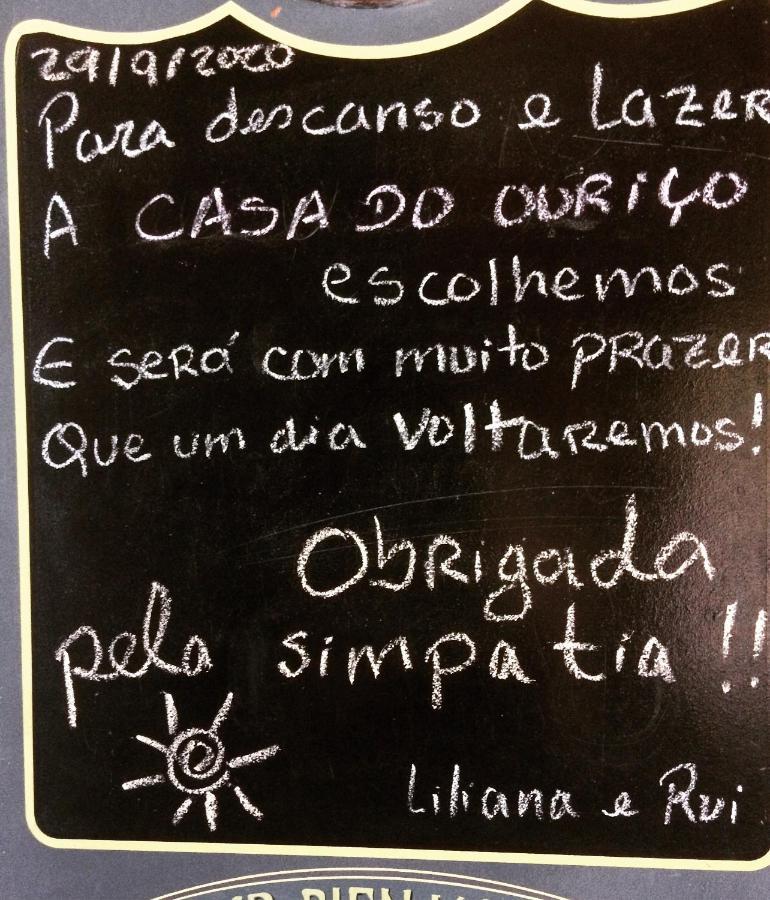 29/9/2020
Para descanso e Lazer
A CASA DO OURIÇO
escolhemos
E será com muito prazer
Que um dia voltaremos!
Obrigada
pela simpatia !!
Liliana e Rui